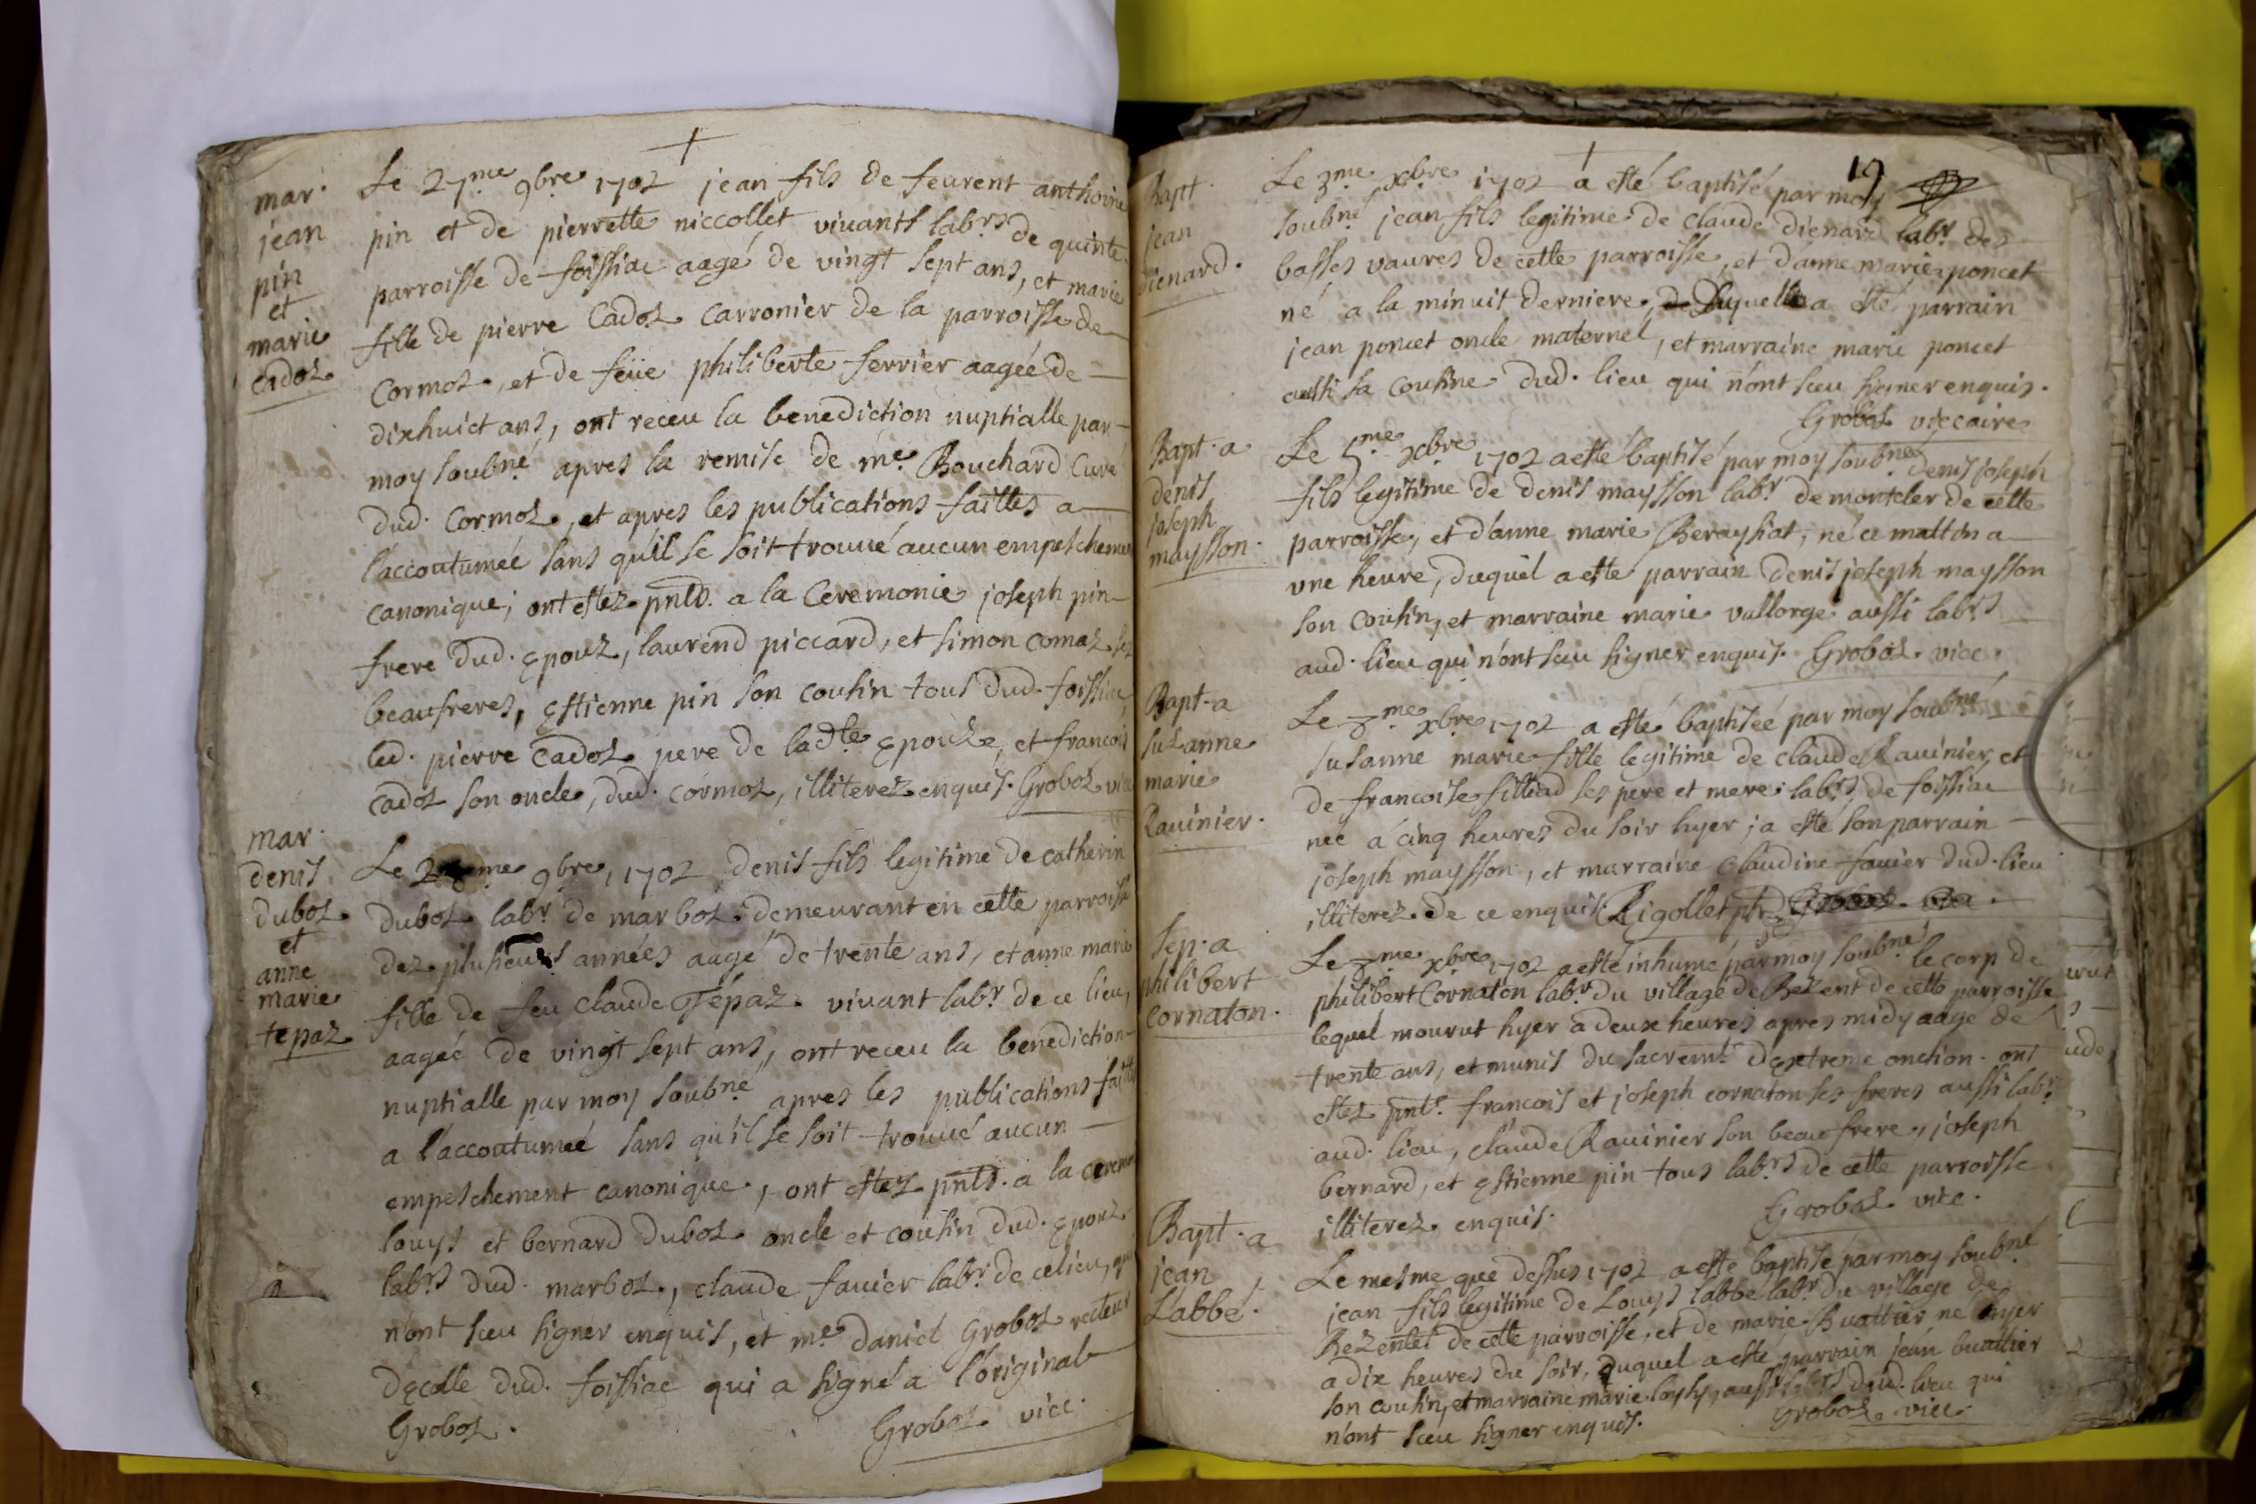 mar.
jean
pin
et
marie
cadoz
Le 27me 9bre 1702 jean fils de feurent anthoine
pin et de pierrette niccollet vivants labrs de quinte
parroisse de foissiac aagé de vingt sept ans, et marie
fille de pierre Cadoz carronier de la parroisse de
Cormoz, et de feüe philiberte ferrier aagée de
dixhuict ans, ont receu la benediction nuptialle par
moy soubné apres la remise de me Bouchard Curé
dud. Cormoz, et apres les publications faittes a
l'accoutumeé sans qu'il se soit trouué aucun empeschemen
canonique, ont estez pnts. a la Ceremonie joseph pin
frere dud. epouz, laurend piccard, et simon comaz ses
beaufreres, estienne pin son cousin tous dud. foissiac
led. pierre Cadoz pere de ladte epouze, et francois
cadoz son oncle, dud. cormoz, illiterez enquis. Groboz vicc
mar.
denis
duboz
et
anne
marie
tepaz
Le 2 me 9bre, 1702 denis fils legitime de catherin
duboz labr de marboz demeurant en cette parroisse
dez plusieurs années aagé de trente ans, et anne marie
fille de feu claude Tépaz vivant labr de ce lieu,
aageé de vingt sept ans, ont receu la benediction
nuptialle par moy soubné apres les publications faittes
a l'accoutumeé sans qu'il se soit trouué aucun
empeschement canonique, ont estez pnts. a la ceremo
louys et bernard duboz oncle et cousin dud. epouz
labrs dud. marboz, claude favier labr de ce lieu, qui
n'ont sceu signer enquis, et me daniel Groboz recteur
decolle dud. foissiac qui a signé a l'original
Groboz. Groboz vicc.
19
Bapt.
jean
dienard.
Le 3me xbre 1702 a esté baptisé par moy
soubné jean fils legitime de claude dienard labr des
basses vaures de cette parroisse, et d'anne marie poncet
né a la minuit derniere, duquel a esté parrain
jean poncet oncle maternel, et marraine marie poncet
aussi sa cousine dud. lieu qui n'ont sceu signer enquis.
Groboz viccaire
Bapt. a
denis
joseph
maysson.
Le 5me xbre 1702 a esté baptisé par moy soubné denis joseph
fils legitime de denis maysson labr de monteler de cette
parroisse, et d'anne marie Beraysiat, né ce mattin a
une heure, duquel a esté parrain denis joseph maysson
son cousin, et marraine marie vallorge aussi labrs
aud. lieu qui n'ont sceu signer enquis. Groboz vicc.
Bapt. a
suzanne
marie
Rauinier.
Le 7me xbre 1702 a esté baptiseé par moy soubné
susanne marie fille legitime de claude Rauinier, et
de francoise filliad ses pere et mere labrs de foissiac
neé a cinq heures du soir hyer, a esté son parrain
joseph maysson, et marraine claudine favier dud. lieu
illiterez de ce enquis Rigollet ptr
Sep. a
philibert
cornaton.
Le 7me xbre 1702 a esté inhumé par moy soubné le corp de
philibert Cornaton labr du village de Bezent de cette parroisse
lequel mourut hyer a deux heures apres midy aagé de
trente ans, et munis du sacremt d'extreme onction. ont
estez pnts. francois et joseph cornaton ses freres aussi labrs
aud. lieu, claude Rauinier son beaufrere, joseph
bernard, et estienne pin tous labrs de cette parroisse
illiterez enquis. Groboz vicc.
Bapt. a
jean
Labbé.
Le mesme que dessus 1702 a esté baptisé par moy soubné
jean fils legitime de Louys labbé labr du village de
Bezentet de cette parroisse, et de marie Buattier né hyer
a dix heures du soir, duquel a esté parrain jean buattier
son cousin, et marraine marie aussi labrs dud. lieu qui
n'ont sceu signer enquis. Groboz vicc.